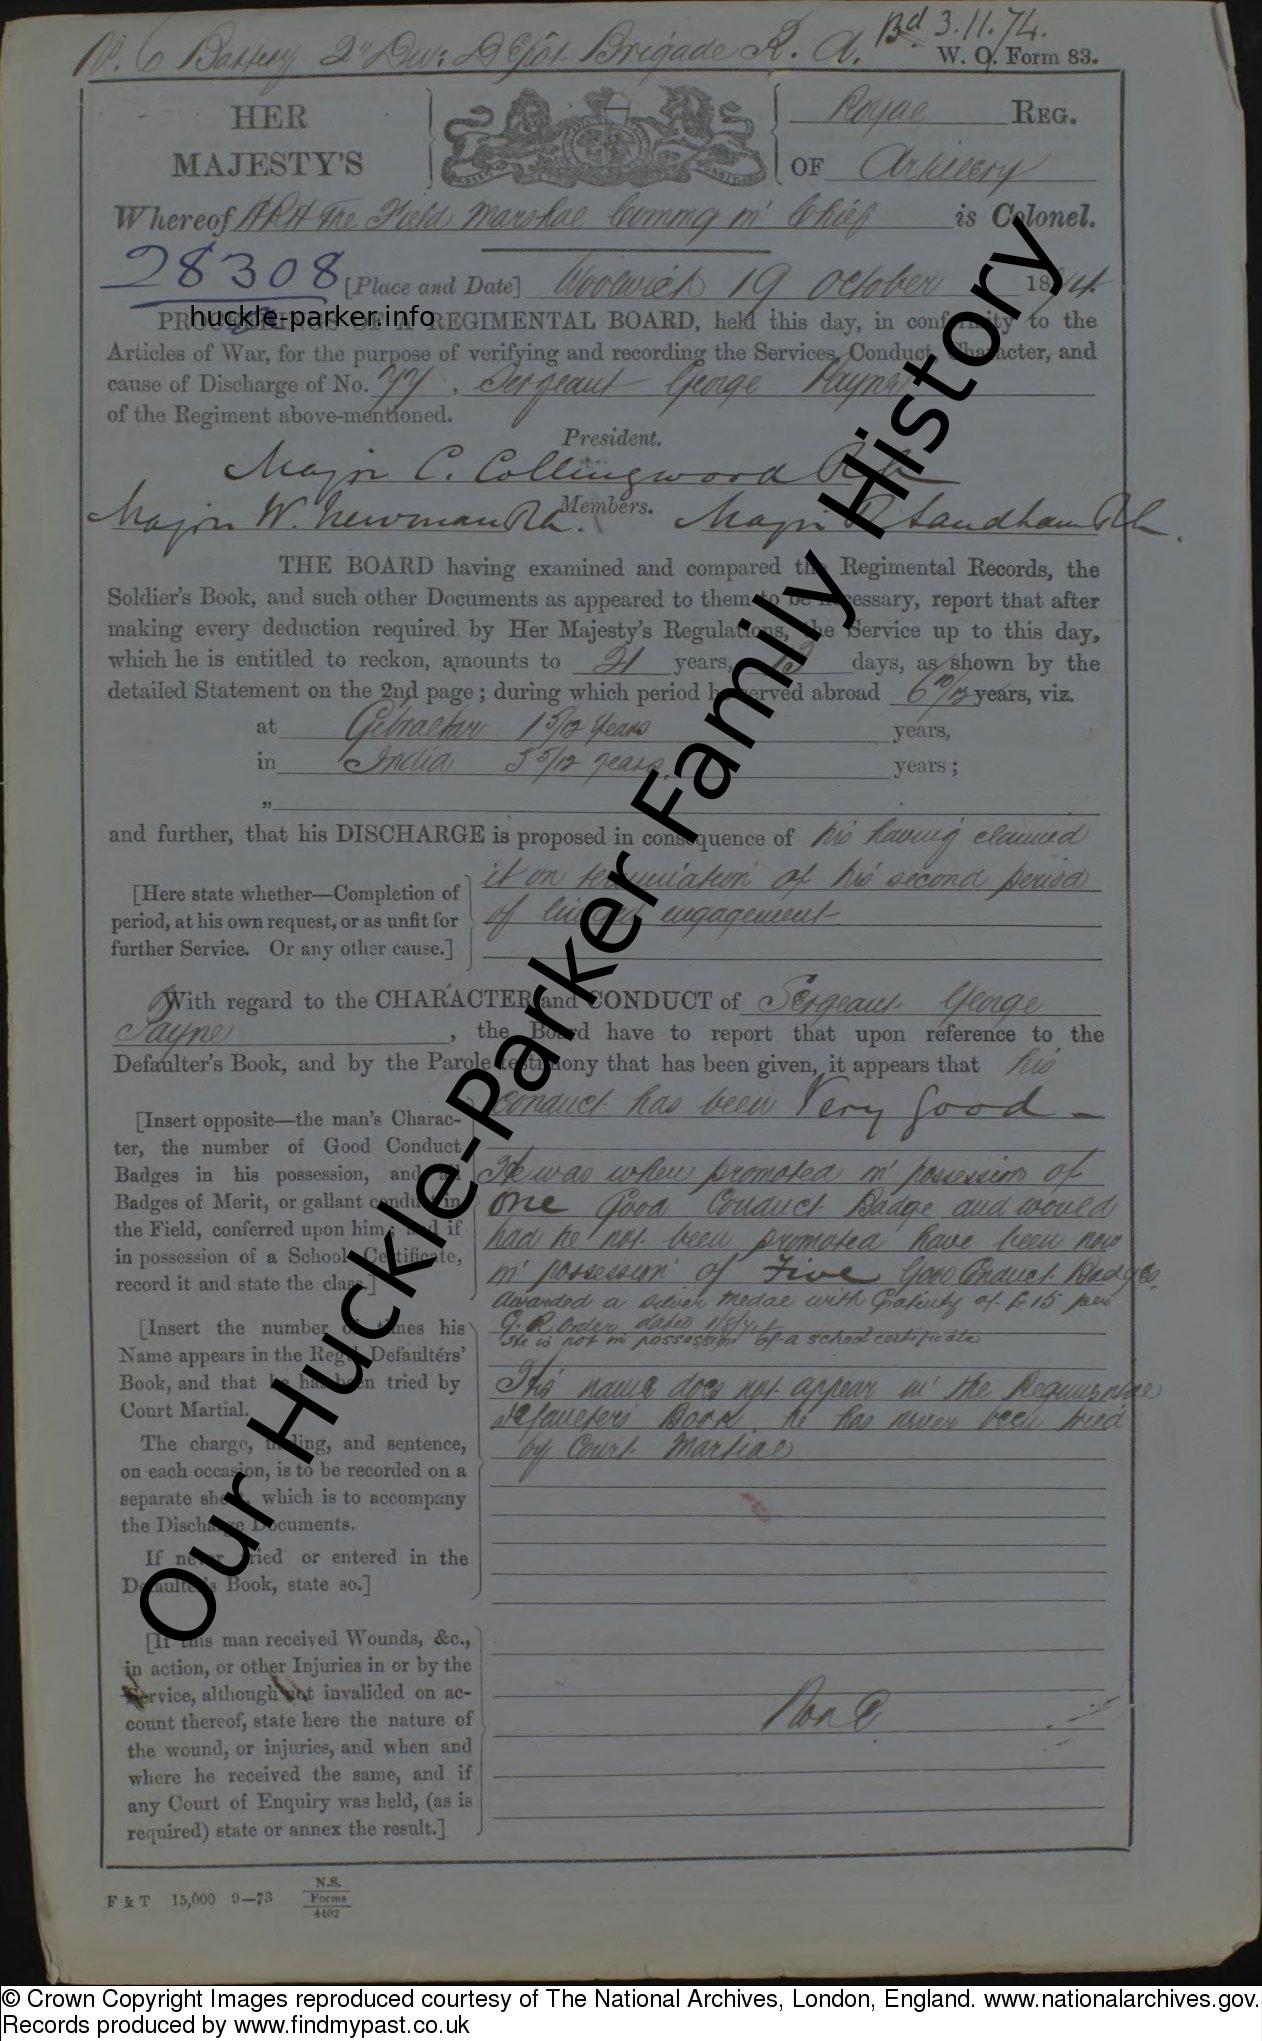 No. 6 Battery 2nd Div: Depôt Brigade R. A. Bd 3.11.74.
W. O. Form 83.
HER
MAJESTY'S
Royal REG.
OF Artillery
Whereof HRH The Field Marshal Commg in Chief is Colonel.
28308 [Place and Date] Woolwich 19 October 1874.
huckle-parker.info
PROCEEDINGS OF A REGIMENTAL BOARD, held this day, in conformity to the
Articles of War, for the purpose of verifying and recording the Services, Conduct, Character, and
cause of Discharge of No. 77, Sergeant George Payne
of the Regiment above-mentioned.
President.
Major C. Collingwood RA
Members.
Major W. Newman RA. Major R Sandham RA.
THE BOARD having examined and compared the Regimental Records, the
Soldier's Book, and such other Documents as appeared to them to be necessary, report that after
making every deduction required by Her Majesty's Regulations, the Service up to this day,
which he is entitled to reckon, amounts to 21 years, 13 days, as shown by the
detailed Statement on the 2nd page; during which period he served abroad 6 10/12 years, viz.
at Gibraltar 1 5/12 years years,
in India 5 5/12 years. years;
„
and further, that his DISCHARGE is proposed in consequence of his having claimed
it on termination of his second period
of limited engagement
[Here state whether—Completion of
period, at his own request, or as unfit for
further Service. Or any other cause.]
With regard to the CHARACTER and CONDUCT of Sergeant George
Payne, the Board have to report that upon reference to the
Defaulter's Book, and by the Parole testimony that has been given, it appears that his
conduct has been Very good –
[Insert opposite—the man's Charac-
ter, the number of Good Conduct
Badges in his possession, and all
Badges of Merit, or gallant conduct in
the Field, conferred upon him; and if
in possession of a School Certificate,
record it and state the class.]
He was when promoted in possession of
one Good Conduct Badge and would
had he not been promoted have been now
in possession of Five Good Conduct Badges.
Awarded a silver medal with Gratuity of £15 per
G. R. Order dated
He is not in possession of a school certificate
[Insert the number of times his
Name appears in the Regtl. Defaulters'
Book, and that he has been tried by
Court Martial.
The charge, finding, and sentence,
on each occasion, is to be recorded on a
separate sheet, which is to accompany
the Discharge Documents.
If never tried or entered in the
Defaulter's Book, state so.]
His name does not appear in the Regimental
defaulters Book he has never been tried
by Court Martial
[If this man received Wounds, &c.,
in action, or other Injuries in or by the
Service, although not invalided on ac-
count thereof, state here the nature of
the wound, or injuries, and when and
where he received the same, and if
any Court of Enquiry was held, (as is
required) state or annex the result.]
None
F & T 15,000 9—73 N.S.
Forms
4402
Our Huckle-Parker Family History
© Crown Copyright Images reproduced courtesy of The National Archives, London, England. www.nationalarchives.gov.
Records produced by www.findmypast.co.uk